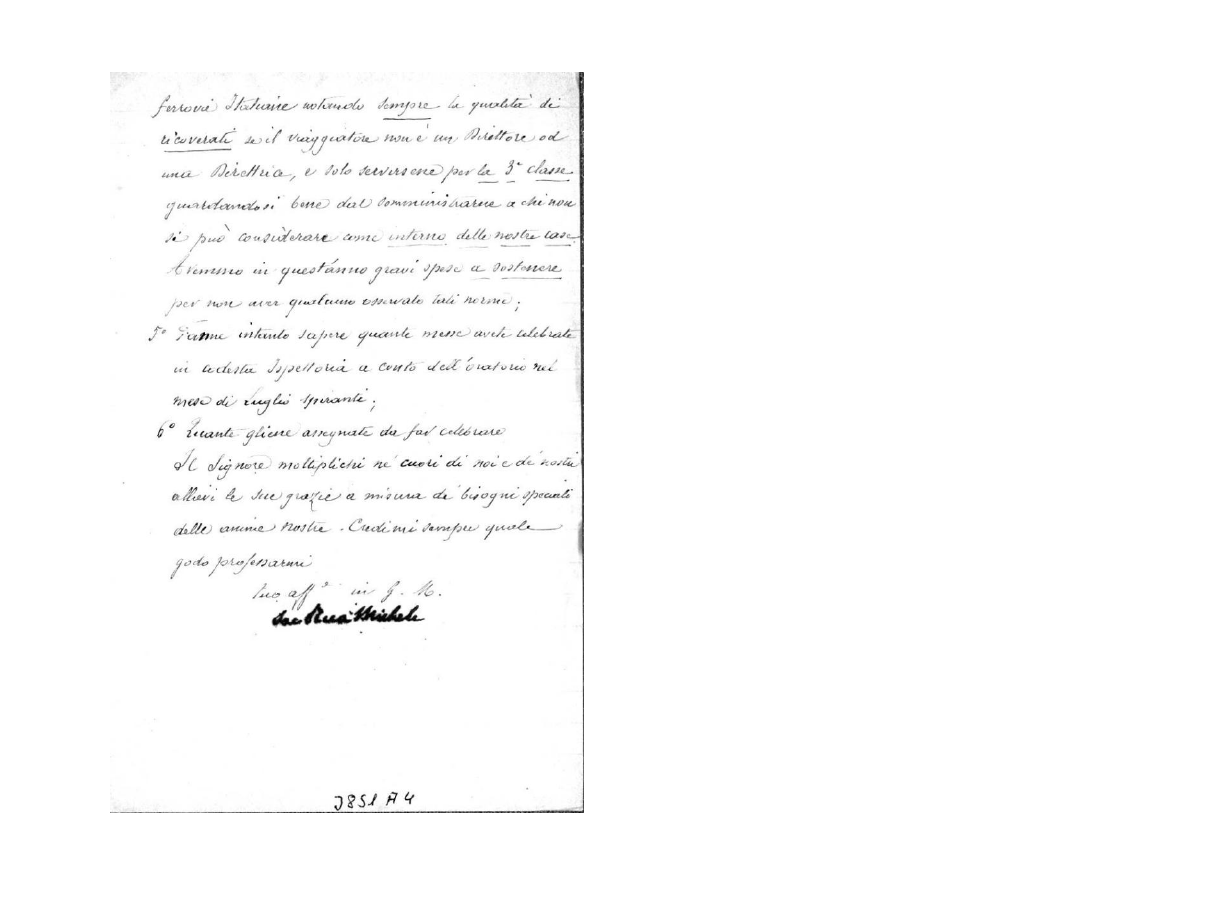 ferrovie Italiane notando sempre la qualità di
ricoverati se il viaggiatore non è un Direttore od
una Direttrice, e solo servirsene per la 3ª classe
guardandosi bene dal somministrarne a chi non
si può considerare come interno delle nostre case.
Avemmo in quest'anno gravi spese a sostenere
per non aver qualcuno osservato tali norme;
5º Fammi intanto sapere quante messe avete celebrate
in codesta Ispettoria a conto dell'oratorio nel
mese di Luglio spirante;
6º Quante gliene assegnate da far celebrare
Il Signore moltiplichi ne' cuori di noi e de' nostri
allievi le sue grazie a misura de' bisogni speciali
delle anime nostre. Credimi sempre quale
godo professarmi
tuo aff.º in G. M.
Sac Rua Michele
3851 A4